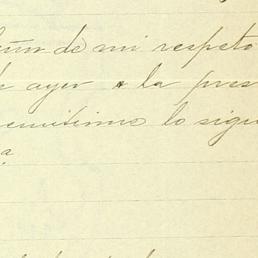 de mi respeto
ayer a la pres
emitimos lo sigu